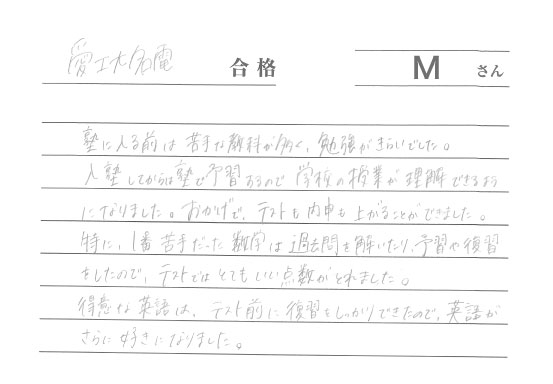 愛工大名電 合格 M さん
塾に入る前は苦手な教科が多く、勉強がきらいでした。
入塾してからは塾で予習するので学校の授業が理解できるよう
になりました。おかげで、テストも内申も上がることができました。
特に、1番苦手だった数学は過去問を解いたり、予習や復習
をしたので、テストではとてもいい点数がとれました。
得意な英語は、テスト前に復習をしっかりできたので、英語が
さらに好きになりました。